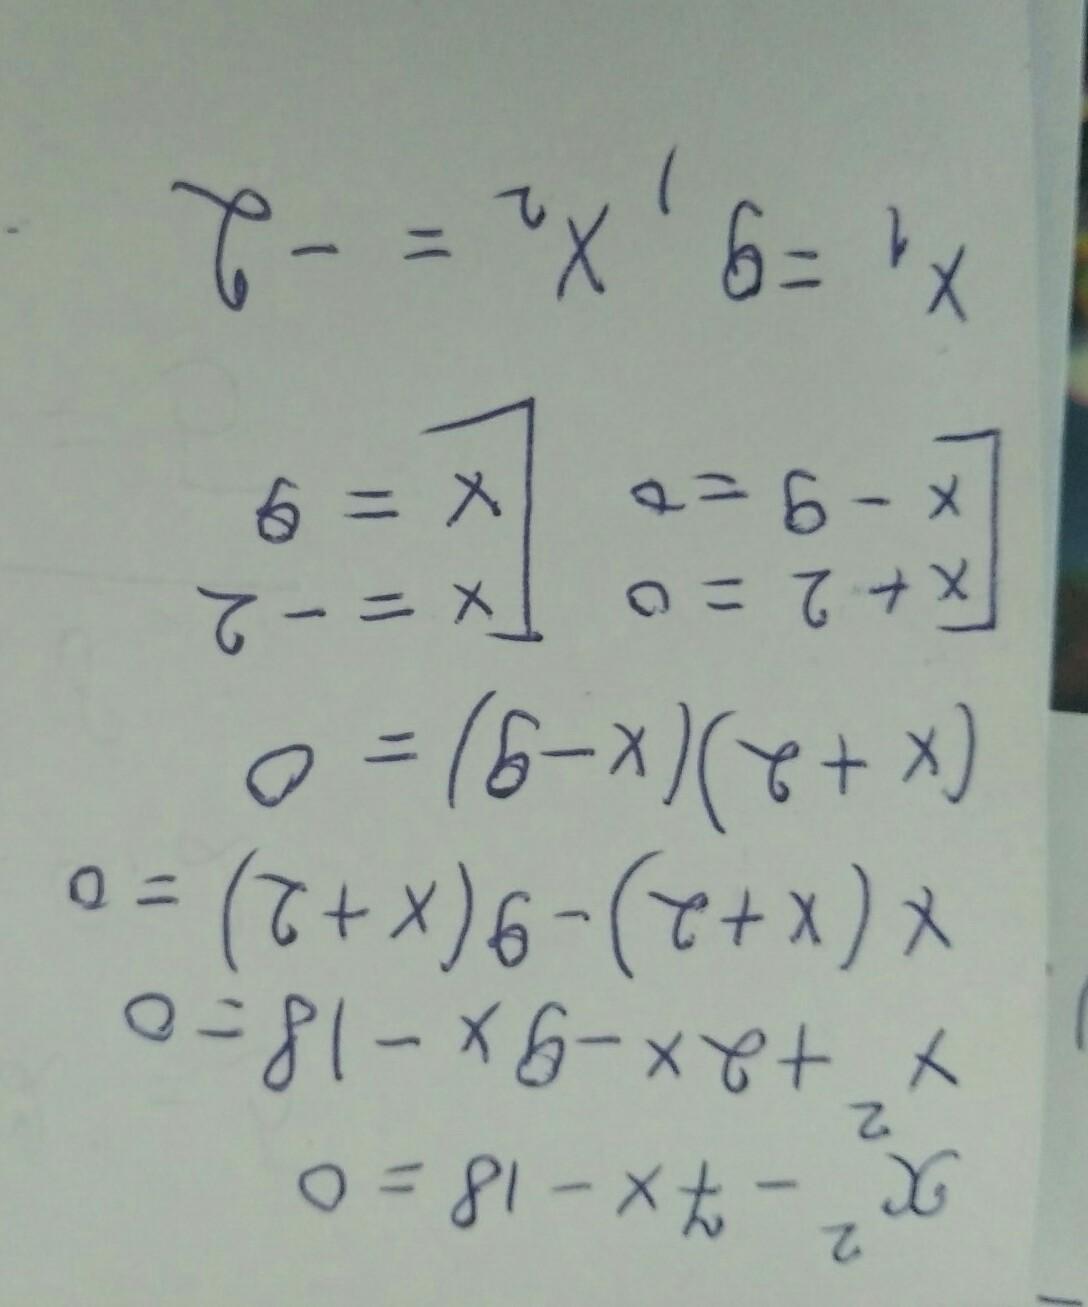 x² - 7x - 18 = 0
x² + 2x - 9x - 18 = 0
x(x+2) - 9(x+2) = 0
(x+2)(x-9) = 0
[x+2=0 [x=-2
[x-9=0 [x=9
x₁=9, x₂=-2